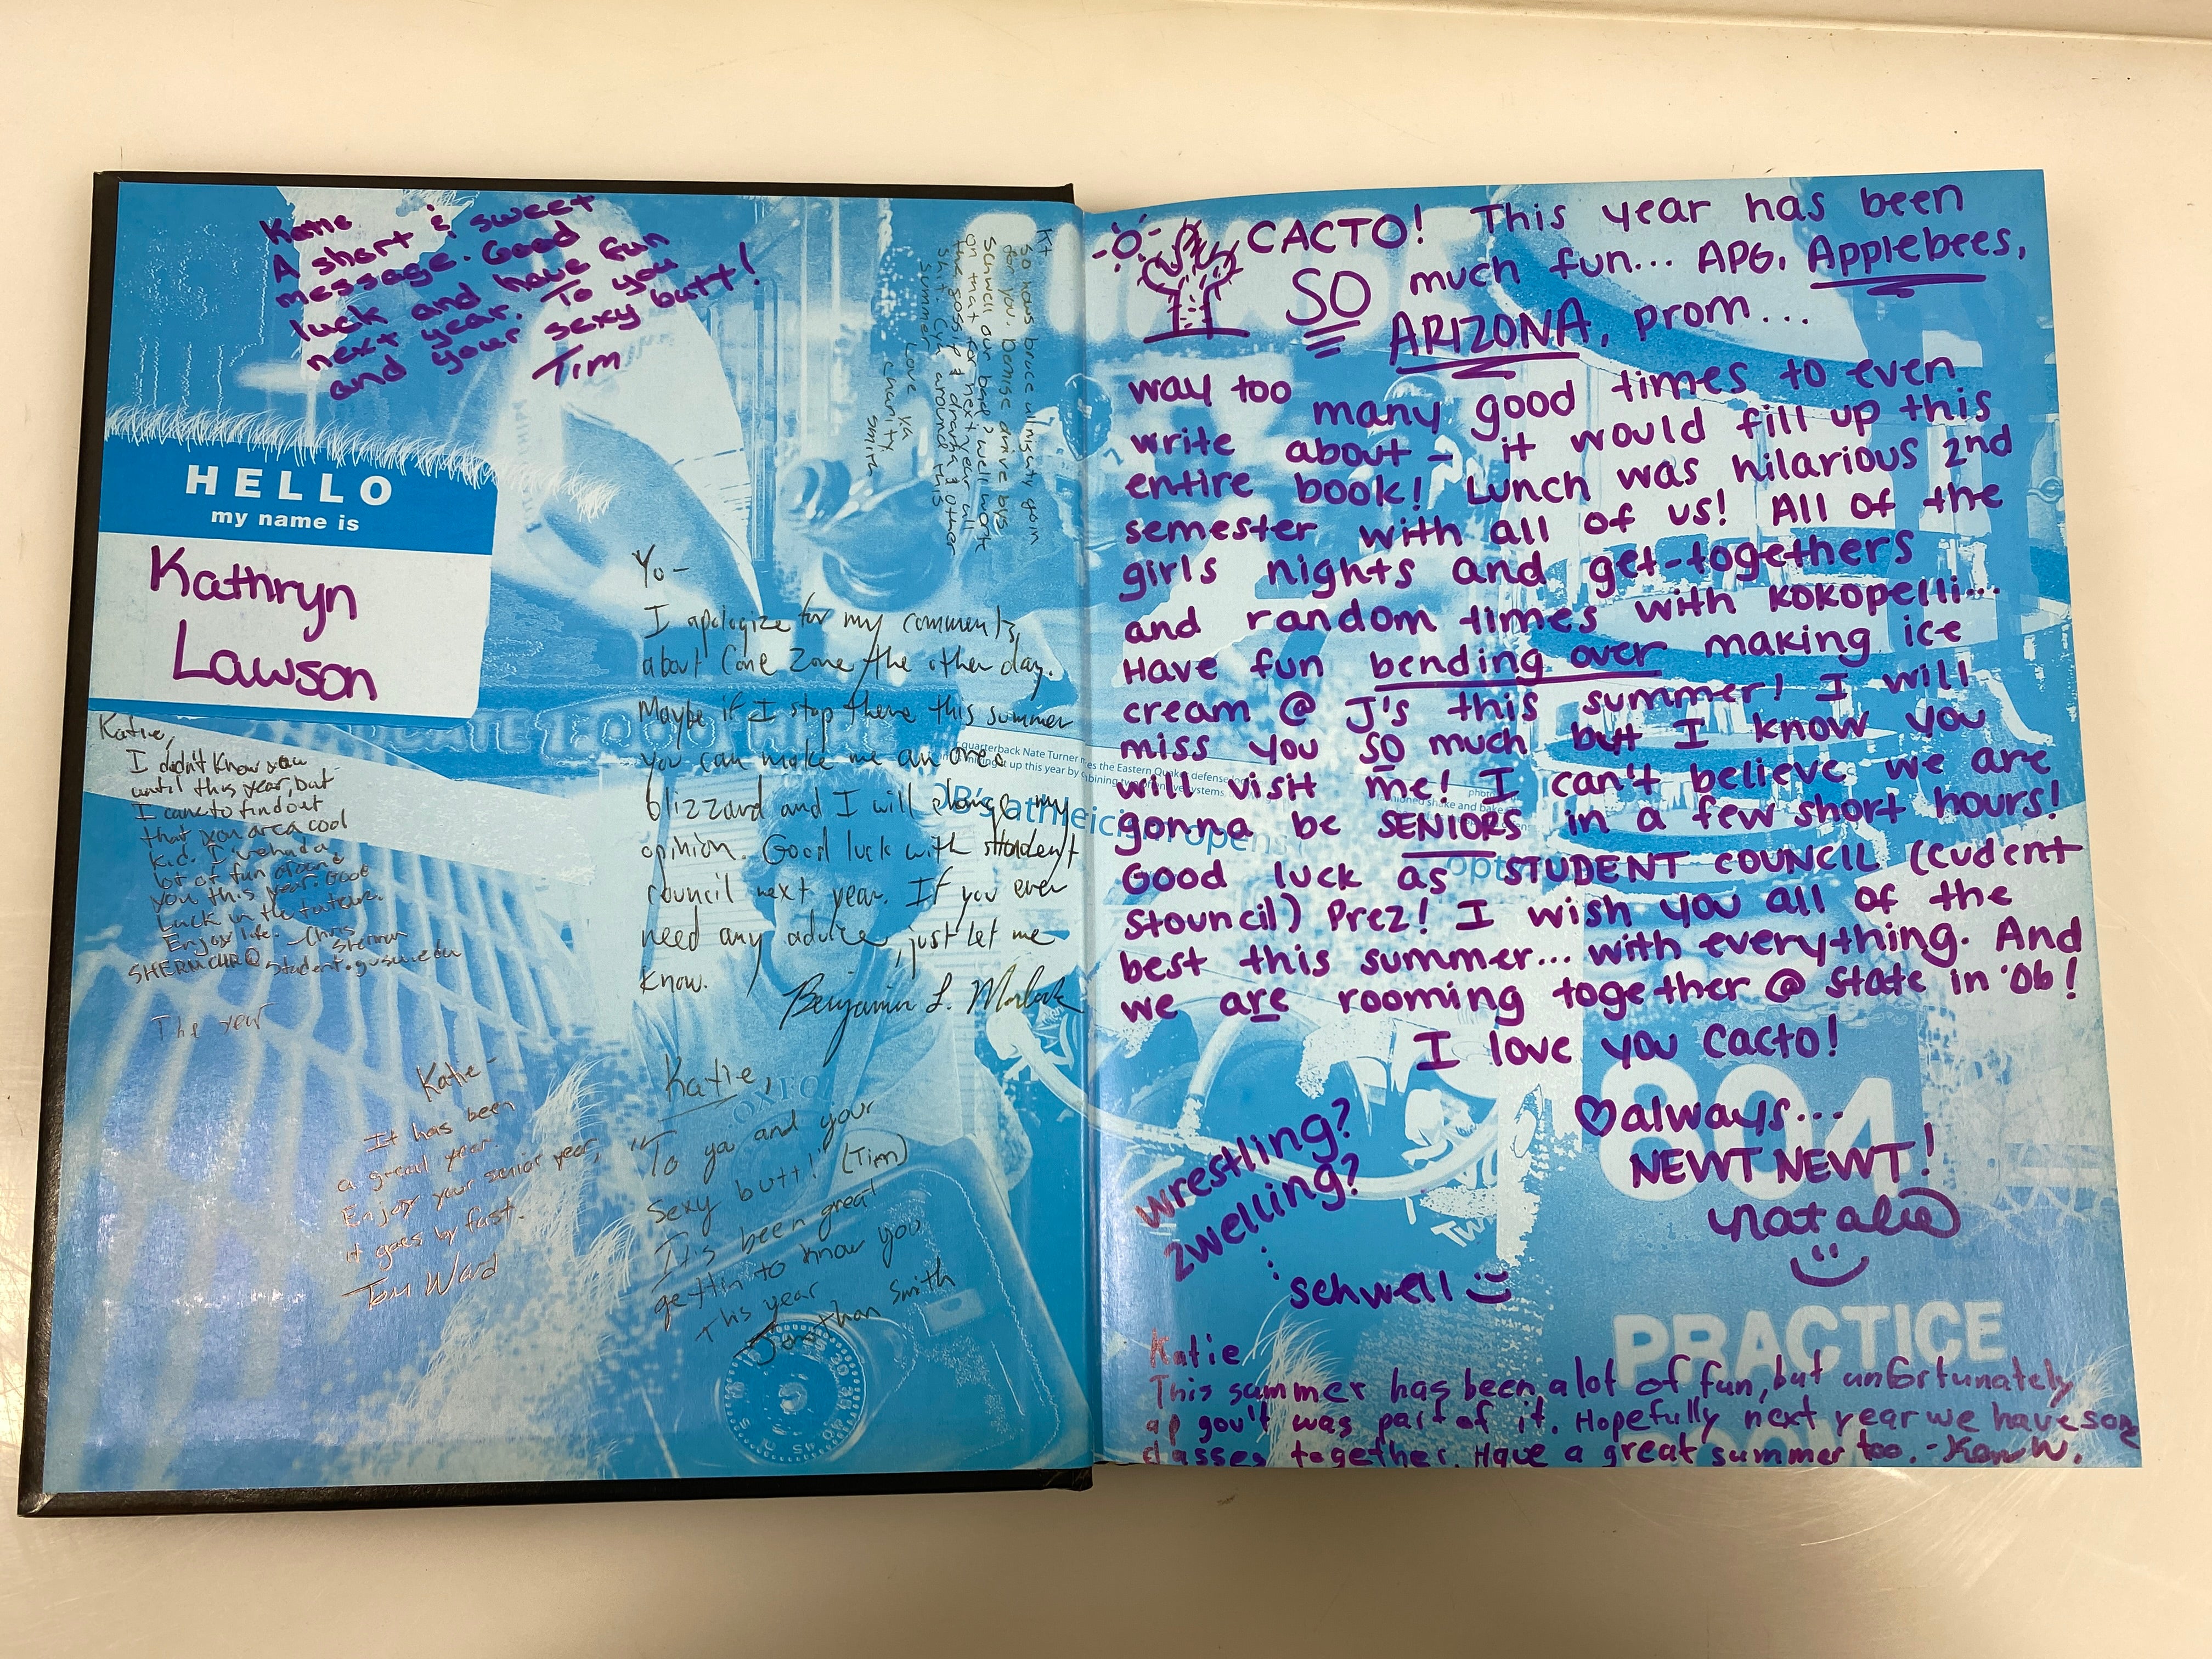 Katie
A short & sweet
message. Good
luck and have fun
next year. To you
and your sexy butt!
Tim
HELLO
my name is
Kathryn
Lawson
Kt
so hows bruce almighty goin
for you. Denise drive bys
Schwell our bad? well work
on that for next year all
the gossip & drama & other
sh*t. Cya around this
summer,
Love ya
chanity
smith
Yo-
I apologize for my comments
about Cone Zone the other day.
Maybe if I stop there this summer
you can make me an oreo
blizzard and I will change my
opinion. Good luck with student
council next year. If you ever
need any advice, just let me
know.
Benjamin L.
Katie,
I didn't know you
until this year, but
I came to find out
that you are a cool
kid. I've had a
lot of fun around
you this year. Good
Luck in the future.
Enjoy life. -Chris
Sherman
SHERMCHR@student.gvsu.edu
The year
Katie-
It has been
a great year.
Enjoy your senior year,
it goes by fast.
Tom Ward
Katie,
"To ya and your
sexy butt!" (Tim)
It's been great
gettin to know you
this year
Jonathan Smith
quarterback Nate Turner
es the Eastern Quaker defense
up this year by
bining two
systems.
CACTO! This year has been
SO much fun... APG, Applebees,
ARIZONA, prom...
way too many good times to even
write about - it would fill up this
entire book! Lunch was hilarious 2nd
semester with all of us! All of the
girls nights and get-togethers
and random times with kokopelli...
Have fun bending over making ice
cream @ J's this summer! I will
miss you SO much but I know you
will visit me! I can't believe we are
gonna be SENIORS in a few short hours!
Good luck as STUDENT COUNCIL (cudent
stouncil) Prez! I wish you all of the
best this summer... with everything. And
we are rooming together @ State in '06!
I love you Cacto!
♡always...
NEWT NEWT!
natalie
wrestling?
zwelling?
schwell
804
PRACTICE
Katie
This summer has been a lot of fun, but unfortunately
ap gov't was part of it. Hopefully next year we have
classes together. Have a great summer too. - W.